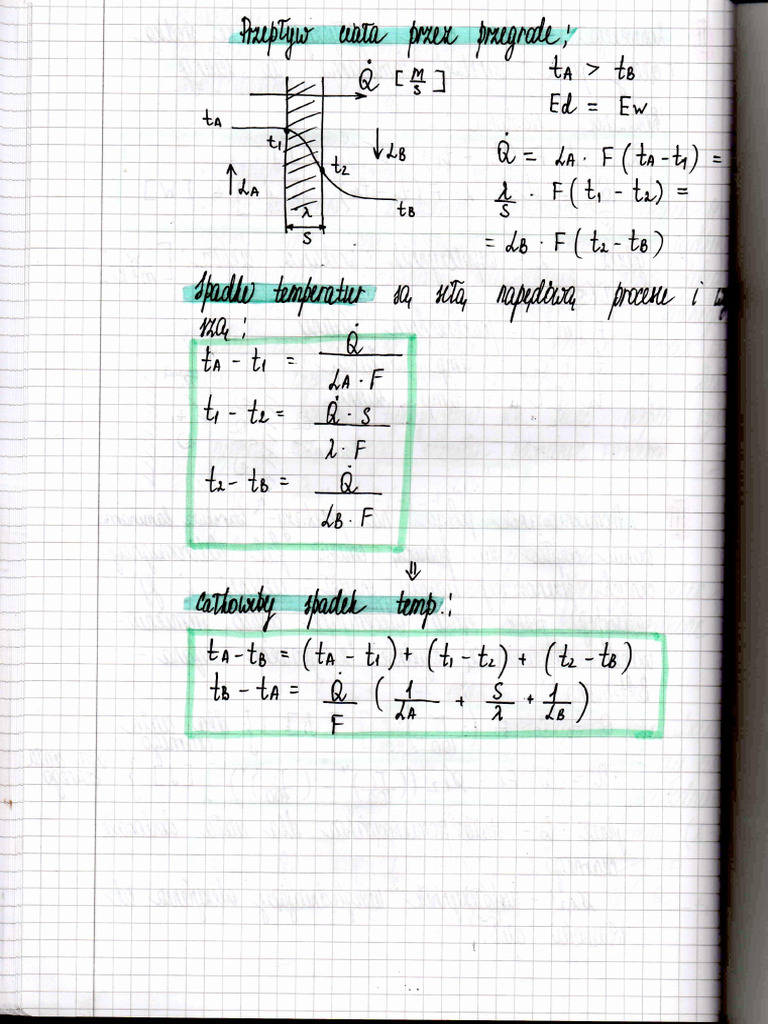 Przepływ ciała przez przegrodę:
Q̇ [M/S]
tA > tB
Ed = Ew
tA
t1
t2
LB
LA
tB
λ
S
Q̇ = LA · F (tA - t1) =
λ/S · F (t1 - t2) =
= LB · F (t2 - tB)
Spadki temperatur są siłą napędową procesu i
szą:
tA - t1 = Q̇ / LA · F
t1 - t2 = Q̇ · S / λ · F
t2 - tB = Q̇ / LB · F
⇓
całkowity spadek temp.:
tA - tB = (tA - t1) + (t1 - t2) + (t2 - tB)
tB - tA = Q̇/F (1/LA + S/λ + 1/LB)